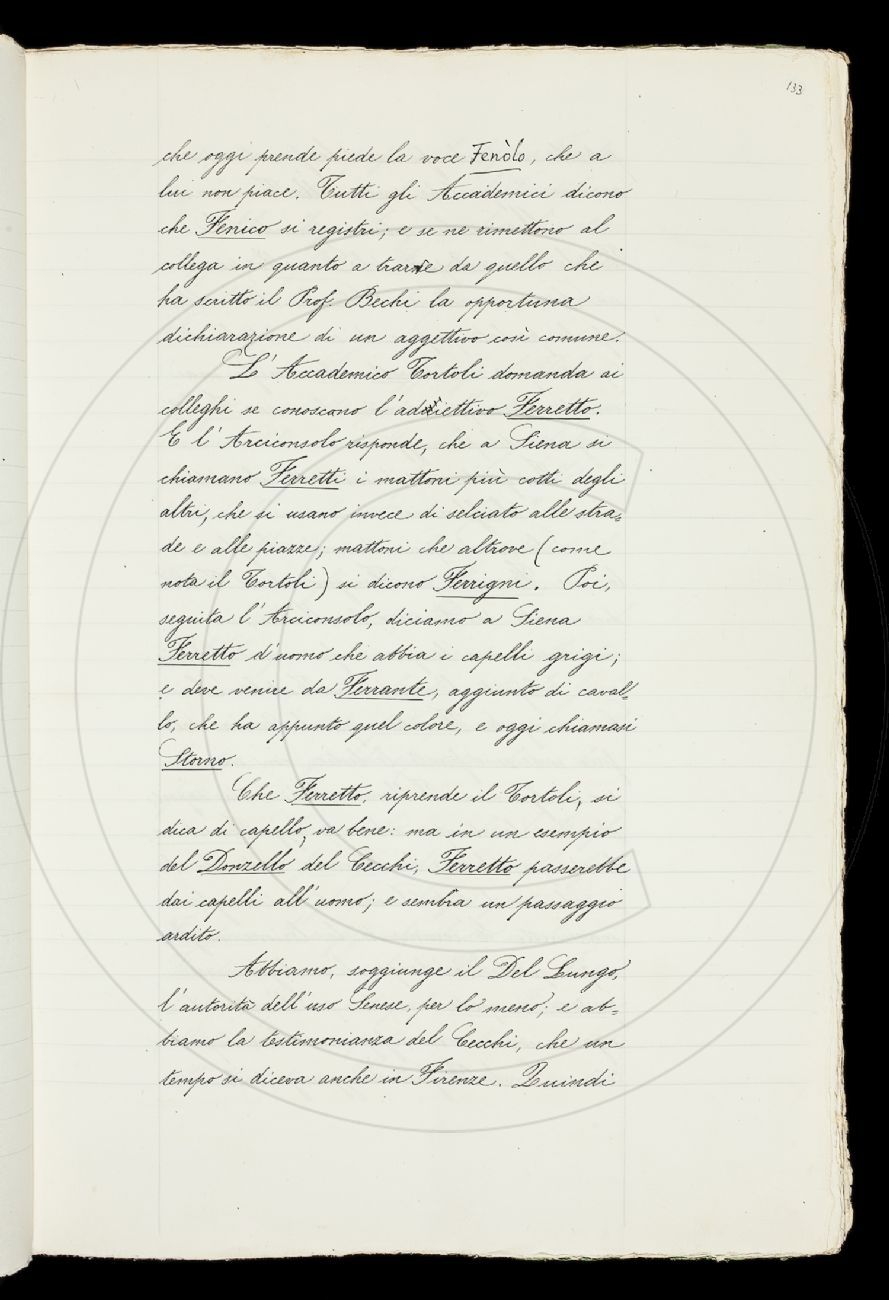 133
che oggi prende piede la voce Fenòlo, che a
lui non piace. Tutti gli Accademici dicono
che Fenico si registri; e se ne rimettono al
collega in quanto a trarre da quello che
ha scritto il Prof. Bechi la opportuna
dichiarazione di un aggettivo così comune.
L' Accademico Tortoli domanda ai
colleghi se conoscono l'addiettivo Ferretto.
E l' Arciconsolo risponde, che a Siena si
chiamano Ferretti i mattoni più cotti degli
altri, che si usano invece di selciato alle stra=
de e alle piazze; mattoni che altrove (come
nota il Tortoli) si dicono Ferrigni. Poi,
seguita l' Arciconsolo, diciamo a Siena
Ferretto d'uomo che abbia i capelli grigi;
e deve venire da Ferrante, aggiunto di caval=
lo, che ha appunto quel colore, e oggi chiamasi
Storno.
Che Ferretto, riprende il Tortoli, si
dica di capello, va bene: ma in un esempio
del Donzello del Cecchi, Ferretto passerebbe
dai capelli all' uomo; e sembra un passaggio
ardito.
Abbiamo, soggiunge il Del Lungo,
l'autorità dell'uso Senese, per lo meno; e ab=
biamo la testimonianza del Cecchi, che un
tempo si diceva anche in Firenze. Quindi